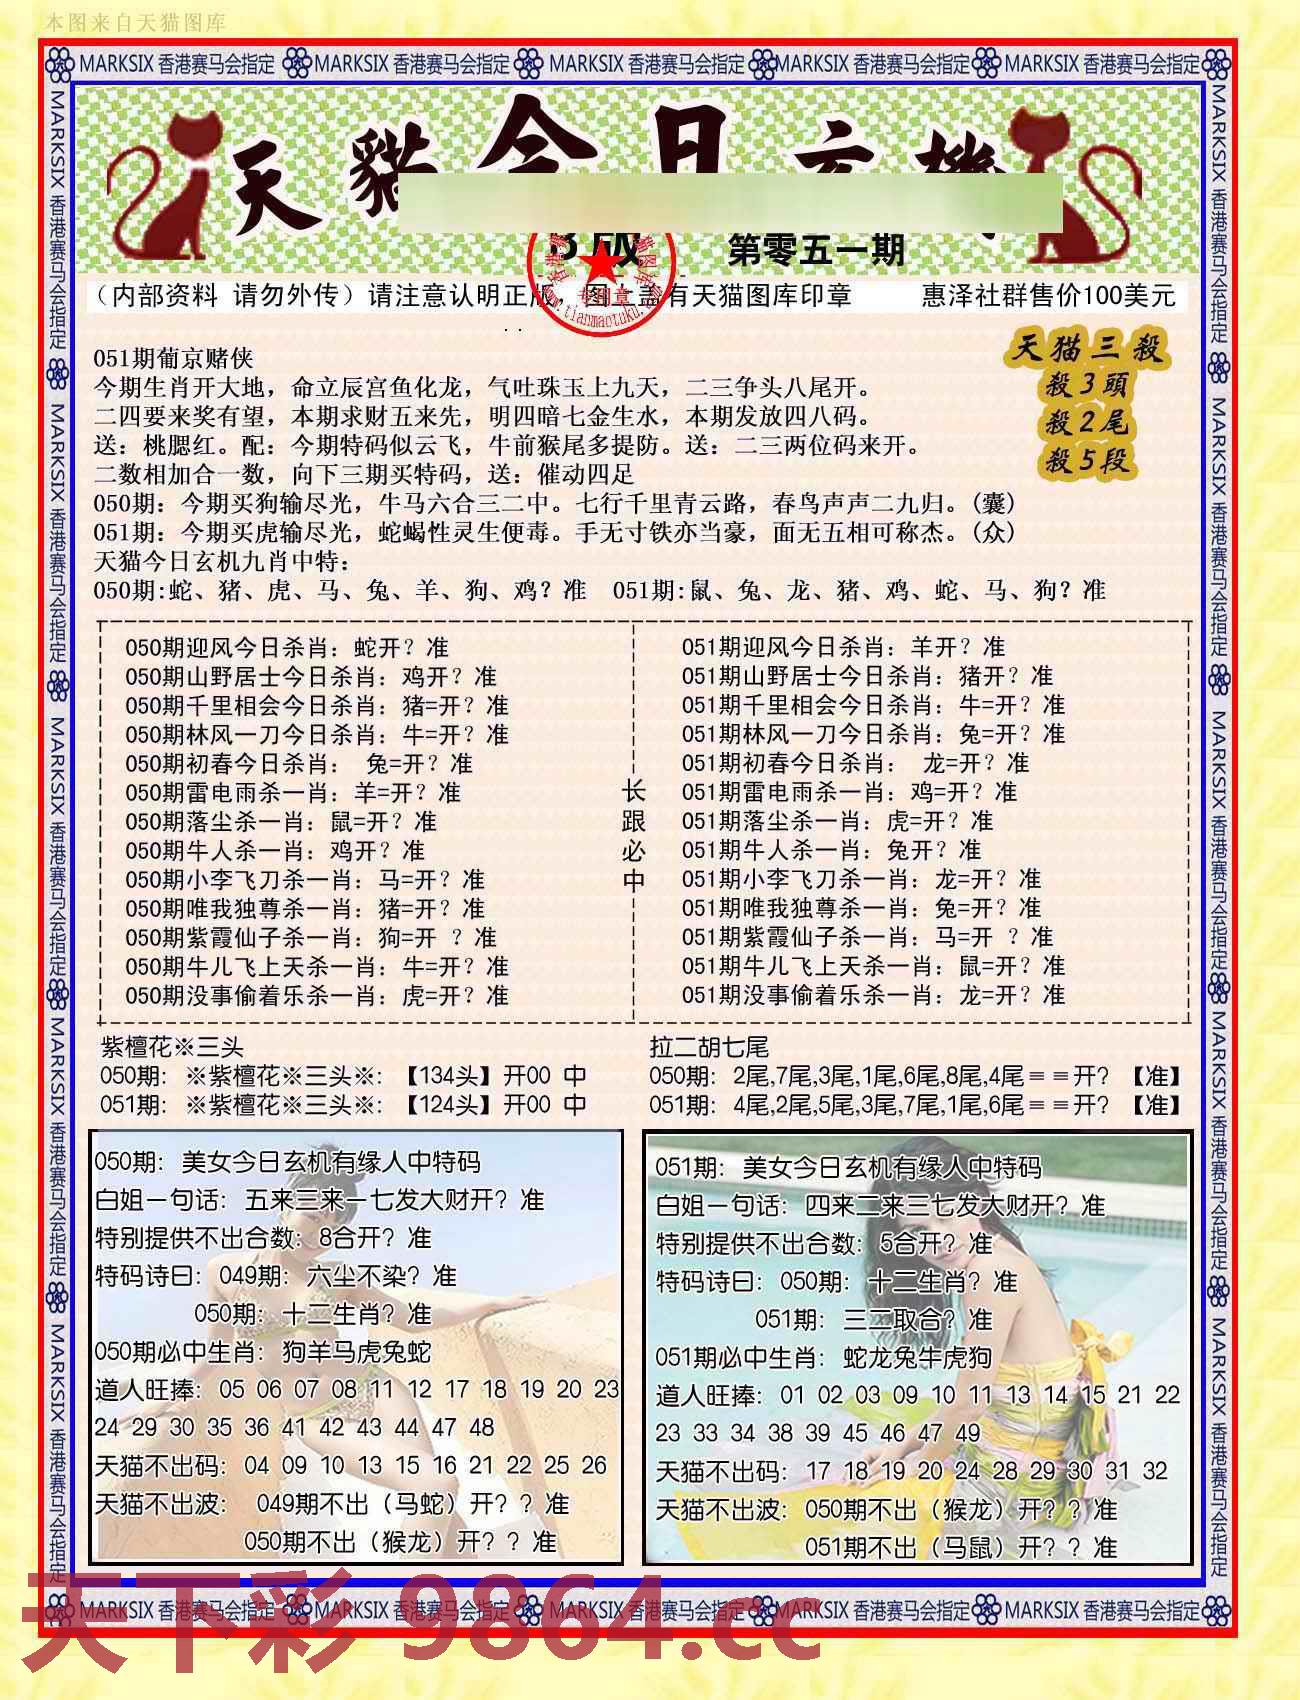 本图来自天猫图库
MARKSIX 香港赛马会指定 MARKSIX 香港赛马会指定 MARKSIX 香港赛马会指定 MARKSIX 香港赛马会指定 MARKSIX 香港赛马会指定
MARKSIX 香港赛马会指定 MARKSIX 香港赛马会指定 MARKSIX 香港赛马会指定 MARKSIX 香港赛马会指定 MARKSIX 香港赛马会指定
MARKSIX 香港赛马会指定 MARKSIX 香港赛马会指定 MARKSIX 香港赛马会指定 MARKSIX 香港赛马会指定 MARKSIX 香港赛马会指定
天貓今日玄機
B版 第零五一期
专用章
www.tianmaotuku.com
（内部资料 请勿外传）请注意认明正版，图上盖有天猫图库印章 惠泽社群售价100美元
天猫三殺
殺3頭
殺2尾
殺5段
051期葡京赌侠
今期生肖开大地，命立辰宫鱼化龙，气吐珠玉上九天，二三争头八尾开。
二四要来奖有望，本期求财五来先，明四暗七金生水，本期发放四八码。
送：桃腮红。配：今期特码似云飞，牛前猴尾多提防。送：二三两位码来开。
二数相加合一数，向下三期买特码，送：催动四足
050期：今期买狗输尽光，牛马六合三二中。七行千里青云路，春鸟声声二九归。(囊)
051期：今期买虎输尽光，蛇蝎性灵生便毒。手无寸铁亦当豪，面无五相可称杰。(众)
天猫今日玄机九肖中特：
050期:蛇、猪、虎、马、兔、羊、狗、鸡？准 051期:鼠、兔、龙、猪、鸡、蛇、马、狗？准
050期迎风今日杀肖：蛇开？准
050期山野居士今日杀肖：鸡开？准
050期千里相会今日杀肖：猪=开？准
050期林风一刀今日杀肖：牛=开？准
050期初春今日杀肖： 兔=开？准
050期雷电雨杀一肖：羊=开？准
050期落尘杀一肖：鼠=开？准
050期牛人杀一肖：鸡开？准
050期小李飞刀杀一肖：马=开？准
050期唯我独尊杀一肖：猪=开？准
050期紫霞仙子杀一肖：狗=开 ？准
050期牛儿飞上天杀一肖：牛=开？准
050期没事偷着乐杀一肖：虎=开？准
长跟必中
051期迎风今日杀肖：羊开？准
051期山野居士今日杀肖：猪开？准
051期千里相会今日杀肖：牛=开？准
051期林风一刀今日杀肖：兔=开？准
051期初春今日杀肖： 龙=开？准
051期雷电雨杀一肖：鸡=开？准
051期落尘杀一肖：虎=开？准
051期牛人杀一肖：兔开？准
051期小李飞刀杀一肖：龙=开？准
051期唯我独尊杀一肖：兔=开？准
051期紫霞仙子杀一肖：马=开 ？准
051期牛儿飞上天杀一肖：鼠=开？准
051期没事偷着乐杀一肖：龙=开？准
紫檀花※三头
050期：※紫檀花※三头※：【134头】开00 中
051期：※紫檀花※三头※：【124头】开00 中
拉二胡七尾
050期：2尾,7尾,3尾,1尾,6尾,8尾,4尾≡≡开？【准】
051期：4尾,2尾,5尾,3尾,7尾,1尾,6尾≡≡开？【准】
050期：美女今日玄机有缘人中特码
白姐一句话：五来三来一七发大财开？准
特别提供不出合数：8合开？准
特码诗曰：049期：六尘不染？准
050期：十二生肖？准
050期必中生肖：狗羊马虎兔蛇
道人旺捧：05 06 07 08 11 12 17 18 19 20 23
24 29 30 35 36 41 42 43 44 47 48
天猫不出码：04 09 10 13 15 16 21 22 25 26
天猫不出波： 049期不出（马蛇）开？？准
050期不出（猴龙）开？？准
051期：美女今日玄机有缘人中特码
白姐一句话：四来二来三七发大财开？准
特别提供不出合数：5合开？准
特码诗曰：050期：十二生肖？准
051期：三二取合？准
051期必中生肖：蛇龙兔牛虎狗
道人旺捧：01 02 03 09 10 11 13 14 15 21 22
23 33 34 38 39 45 46 47 49
天猫不出码：17 18 19 20 24 28 29 30 31 32
天猫不出波：050期不出（猴龙）开？？准
051期不出（马鼠）开？？准
MARKSIX 香港赛马会指定 MARKSIX 香港赛马会指定 MARKSIX 香港赛马会指定 MARKSIX 香港赛马会指定 MARKSIX 香港赛马会指定
天下彩 9864.cc